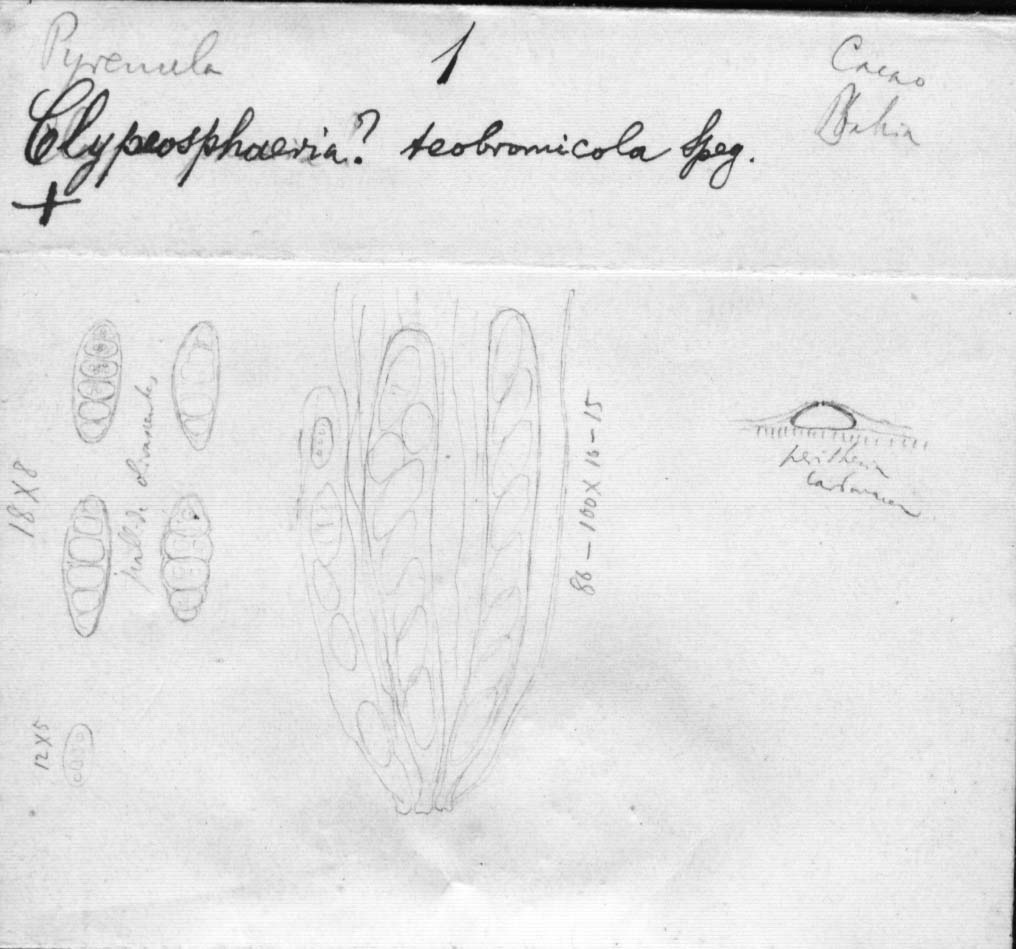 Pyrenula
1
Cacao
Bahia
Clypeosphaeria? teobromicola Speg.
+
18 X 8
12 X 5
86 - 100 X 16 - 15
perithecia